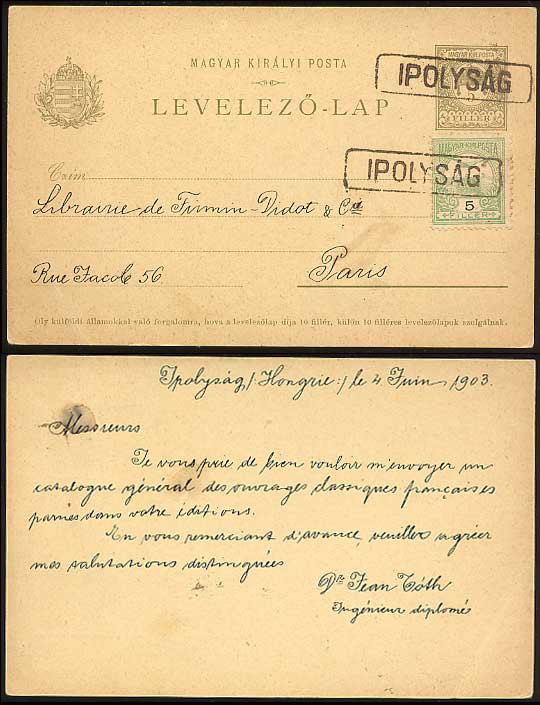 MAGYAR KIRÁLYI POSTA
LEVELEZŐ-LAP
MAGYAR KIR. POSTA
5
FILLÉR
IPOLYSÁG
MAGYAR KIR. POSTA
5
FILLÉR
IPOLYSÁG
Czim
Librairie de Firmin-Didot & Cie
Rue Jacob 56
Paris
Oly külföldi államokkal való forgalomra, hova a levelezőlap dija 10 fillér, külön 10 filléres levelezőlapok szolgálnak.
Ipolyság /: Hongrie :/ le 4 Juin 1903.
Messieurs
Je vous prie de bien vouloir m'envoyer un
catalogue général des ouvrages classiques françaises
parues dans votre éditions.
En vous remerciant d'avance, veuillez agréer
mes salutations distinguées
Dr. Jean Tóth
Ingénieur diplomé